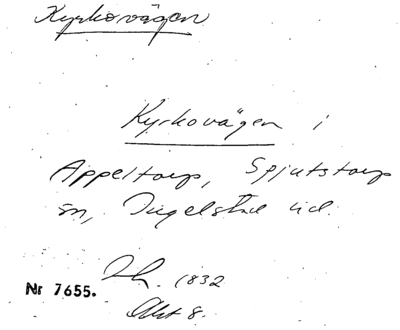 Kyrkovägen
Kyrkovägen i
Äppeltorp, Spjutstorps
sn, Ingelstad hd.
1832
Nr 7655.
Akt 8.